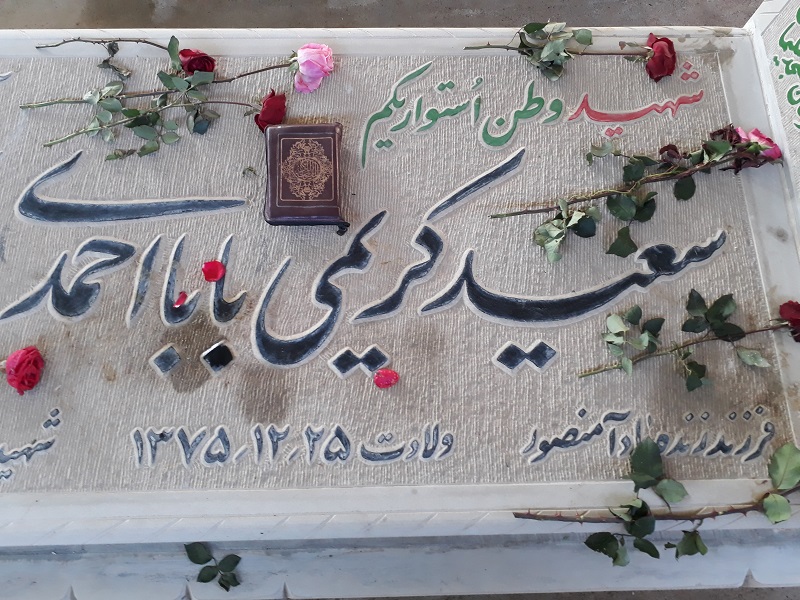 شهید وطن اُستوار یکم
سعید کریمی بابا احمدی
فرزند زنده یاد آمنصور ولادت ۱۳۷۵٫۱۲٫۲۵ شهید